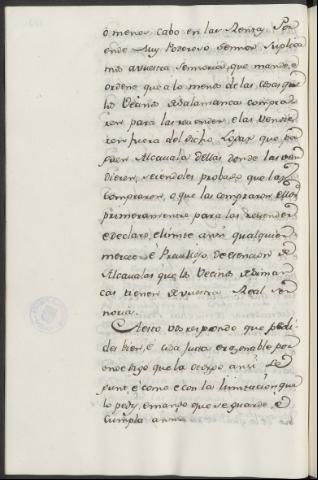 ó menos Cabo en las Rentas. Por
ende Muy Poderoso Señor suplica
mos a vuestra Señoria, que mande, e
ordene que a lo menos de las cosas que
los Vecinos de Salamanca compra
ren para las revender, e las vendie
ren fuera del dicho Logar que pa
guen Alcavala dellas donde las ven
dieren, seiendoles probado que las
compraron, o que las compraron ellos
primeramente para las revender
e declare, e limite ansi qualquier
merced e Previllejo de esencion de
Alcavalas que los Vecinos de
cas tienen de vuestra Real Se
ñoria.
A esto vos respondo que pedi
des bien, e cosa justa e razonable por
onde digo que la otorgo ansi
e como e con la limitacion que
lo pedis, e mando que se guarde, e
cumpla ansi